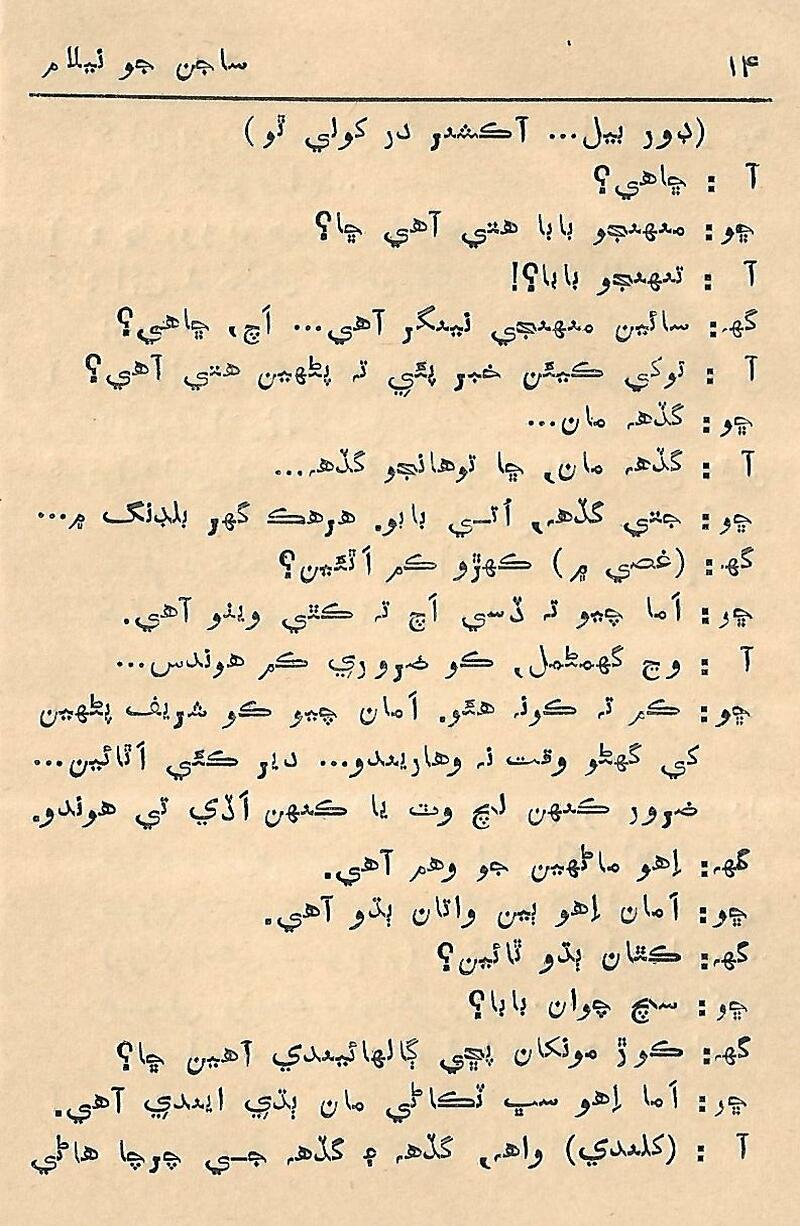 ۱۴ ساجن جو نيلام
(ڊور بيل... آڪشنر در کولي ٿو)
آ : ڇاهي؟
ڇو: منهنجو بابا هتي آهي ڇا؟
آ : تنهنجو بابا؟!
گهہ: سائين منهنجي نينگر آهي... اَچ، ڇاهي؟
آ : توکي ڪيئن خبر پئي تہ پڻهين هتي آهي؟
ڇو: گڏهہ مان...
آ : گڏهہ مان، ڇا توهانجو گڏهہ...
ڇو: جتي گڏهہ، اُتي بابو. هرهڪ گهر بلڊنگ ۾...
گهہ: (غصي ۾) ڪهڙو ڪم اَٿئين؟
ڇو: اَما چيو تہ ڏسي اَچ تہ ڪٿي ويٺو آهي.
آ : وڃ گهمڻمل، ڪو ضروري ڪم هوندس...
ڇو: ڪم تہ ڪونہ هئو. اَمان چيو ڪو شريف پڻهين
کي گهڻو وقت نہ وهاريندو... دير ڪئي اَٿائين...
ضرور ڪنهن لڇ وٽ يا ڪنهن اَڏي تي هوندو.
گهہ: اِهو ماڻهين جو وهم آهي.
ڇو: اَمان اِهو ٻين واتان ٻڌو آهي.
گهہ: ڪٿان ٻڌو ٿائين؟
ڇو: سچ چوان بابا؟
گهہ: ڪوڙ مونکان پڇي ڳالهائيندي آهين ڇا؟
ڇو: اَما اِهو سڀ ٽڪاڻي مان ٻڌي ايندي آهي.
آ : (کلندي) واهہ، گڏهہ ۽ گڏهہ جي چرچا هاڻي